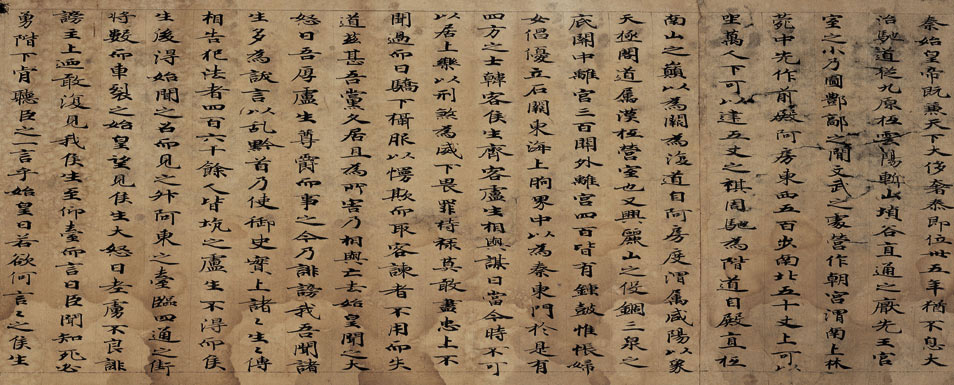 秦始皇帝既燕天下大侈奢泰即位卅五年猶不息大
治馳道從九原柢雲陽塹山堙谷直通之厭先王宮
室之小乃圖酆鄗之閒文武之處營作朝宮渭南上林
菀中先作前殿阿房東西五百步南北五十丈上可以
坐萬人下可以建五丈之旗周馳為階道自殿直柢
南山之巔以為闕為復道自阿房度渭属咸陽以象
天極閣道属漢柢營室也又興驪山之伇錮三泉之
底關中離宮三百關外離宮四百皆有鍾鼓帷帳婦
女倡優立石闕東海上朐界中以為秦東門於是有
四方之士韓客侯生齊客盧生相與謀曰當今時不可
以居上樂以刑煞為威下畏罪持祿莫敢盡忠上不
聞過而日驕下懾服以慢欺而取容諫者不用而失
道玆甚吾黨久居且為所害乃相與亡去始皇聞之大
怒曰吾厚盧生尊爵而事之今乃誹謗我吾聞諸
生多為訞言以乱黔首乃使御史案上諸〻生〻傳
相告犯法者四百六十餘人皆坑之盧生不得而侯
生後得始聞之召而見之升阿東之臺臨四通之街
將數而車裂之始皇望見侯生大怒曰老虜不良誹
謗主上迺敢復見我侯生至仰臺而言曰臣聞知死必
勇階下肯聽臣之一言乎始皇曰若欲何言〻之侯生